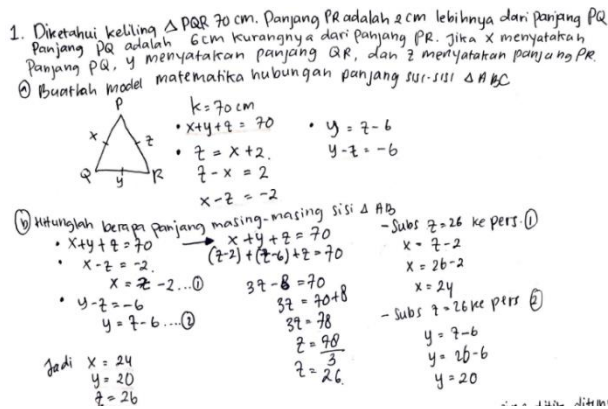 1. Diketahui keliling △ PQR 70 cm. Panjang PR adalah 2 cm lebihnya dari panjang PQ
Panjang PQ adalah 6 cm kurangnya dari panjang PR. Jika x menyatakan
Panjang PQ, y menyatakan panjang QR, dan z menyatakan panjang PR.
ⓐ Buatlah model matematika hubungan panjang sisi-sisi △ ABC
P
x
z
Q
y
R
k = 70 cm
• x+y+z = 70
• z = x+2.
z-x = 2
x-z = -2
• y = z-6
y-z = -6
ⓑ Hitunglah berapa panjang masing-masing sisi △ AB
• x+y+z = 70
• x-z = -2.
x = z -2...①
• y-z = -6
y = z-6....②
→ x+y+z = 70
(z-2)+(z-6)+z = 70
3z-8 = 70
3z = 70+8
3z = 78
z = 78/3
z = 26.
-Subs z=26 ke pers.①
x = z-2
x = 26-2
x = 24
- Subs z=26 ke pers ②
y = z-6
y = 26-6
y = 20
Jadi x = 24
y = 20
z = 26